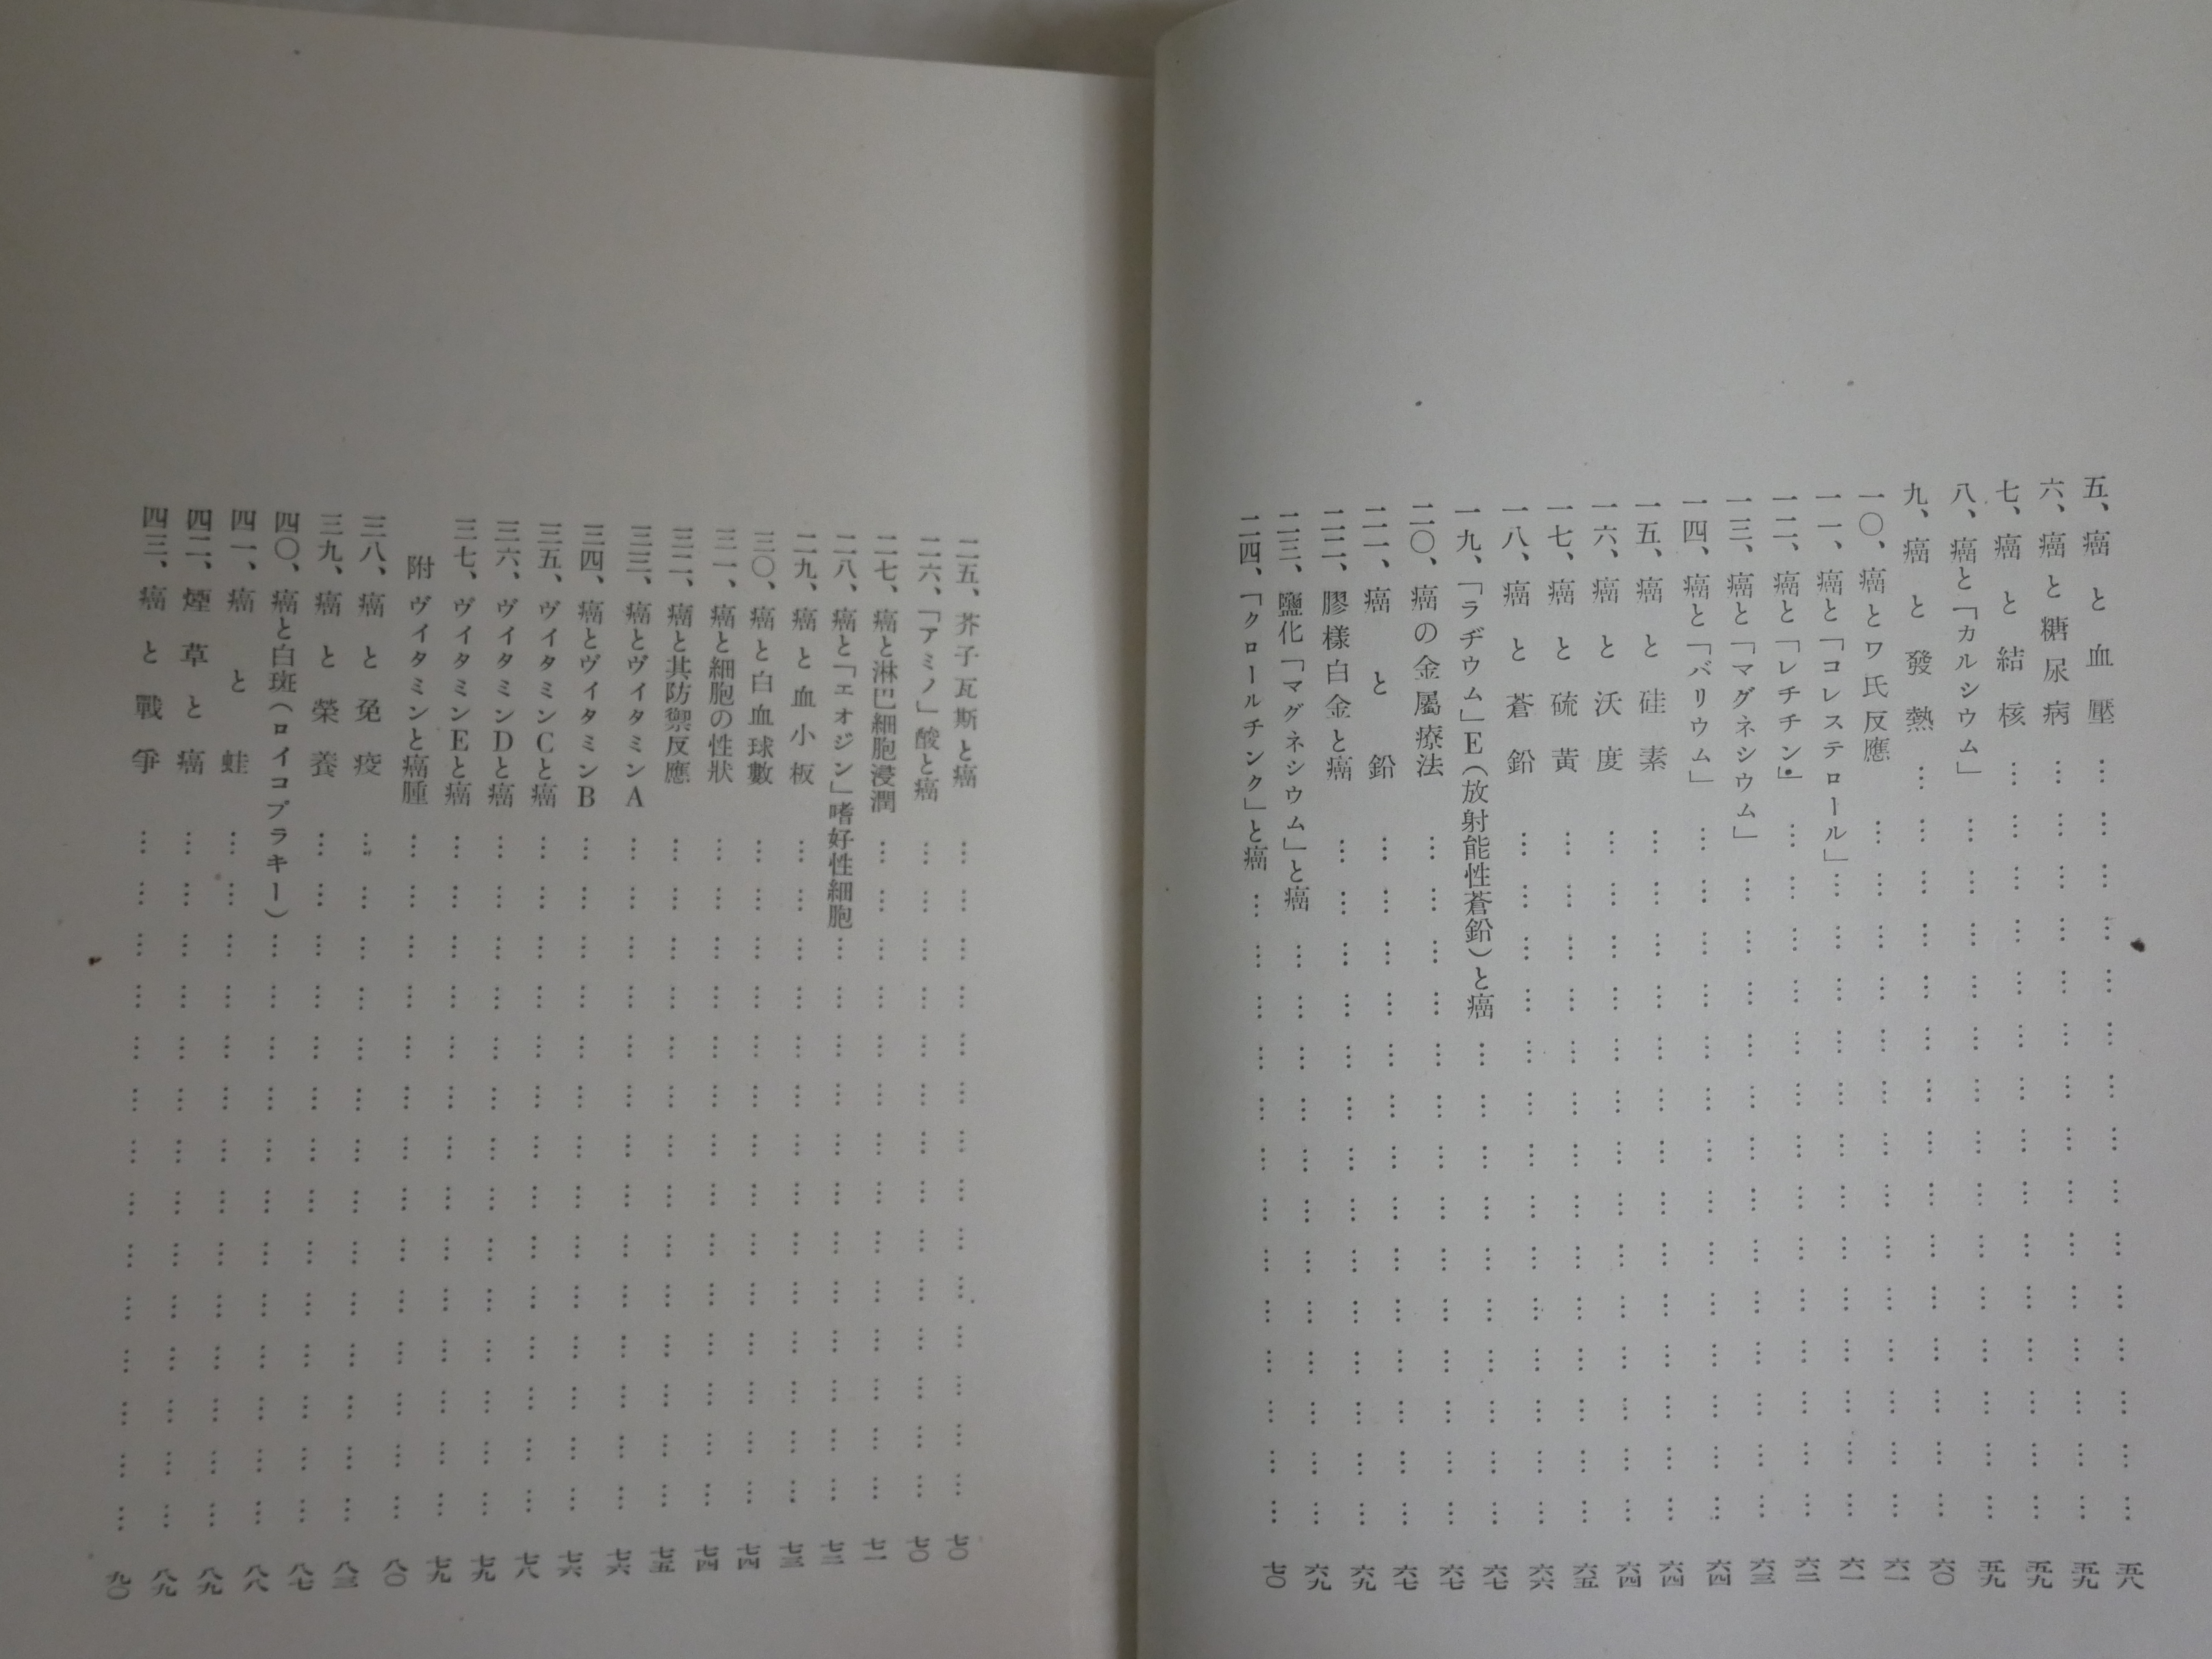 五、癌と血壓…………五八
六、癌と糖尿病…………五九
七、癌と結核…………五九
八、癌と「カルシウム」…………五九
九、癌と發熱…………六〇
一〇、癌とワ氏反應…………六一
一一、癌と「コレステロール」…………六一
一二、癌と「レチチン」…………六二
一三、癌と「マグネシウム」…………六三
一四、癌と「バリウム」…………六四
一五、癌と硅素…………六四
一六、癌と沃度…………六四
一七、癌と硫黃…………六五
一八、癌と蒼鉛…………六六
一九、「ラヂウム」E（放射能性蒼鉛）と癌…………六七
二〇、癌の金屬療法…………六七
二一、癌と鉛…………六七
二二、膠樣白金と癌…………六九
二三、鹽化「マグネシウム」と癌…………六九
二四、「クロールチンク」と癌…………七〇
二五、芥子瓦斯と癌…………七〇
二六、「アミノ」酸と癌…………七〇
二七、癌と淋巴細胞浸潤…………七一
二八、癌と「エオジン」嗜好性細胞…………七二
二九、癌と血小板…………七三
三〇、癌と白血球數…………七四
三一、癌と細胞の性狀…………七四
三二、癌と其防禦反應…………七五
三三、癌とヴイタミンA…………七六
三四、癌とヴイタミンB…………七六
三五、ヴイタミンCと癌…………七八
三六、ヴイタミンDと癌…………七九
三七、ヴイタミンEと癌…………七九
附 ヴイタミンと癌腫…………八〇
三八、癌と免疫…………八三
三九、癌と榮養…………八七
四〇、癌と白斑（ロイコプラキー）…………八八
四一、癌と蛙…………八九
四二、煙草と癌…………八九
四三、癌と戰爭…………九〇